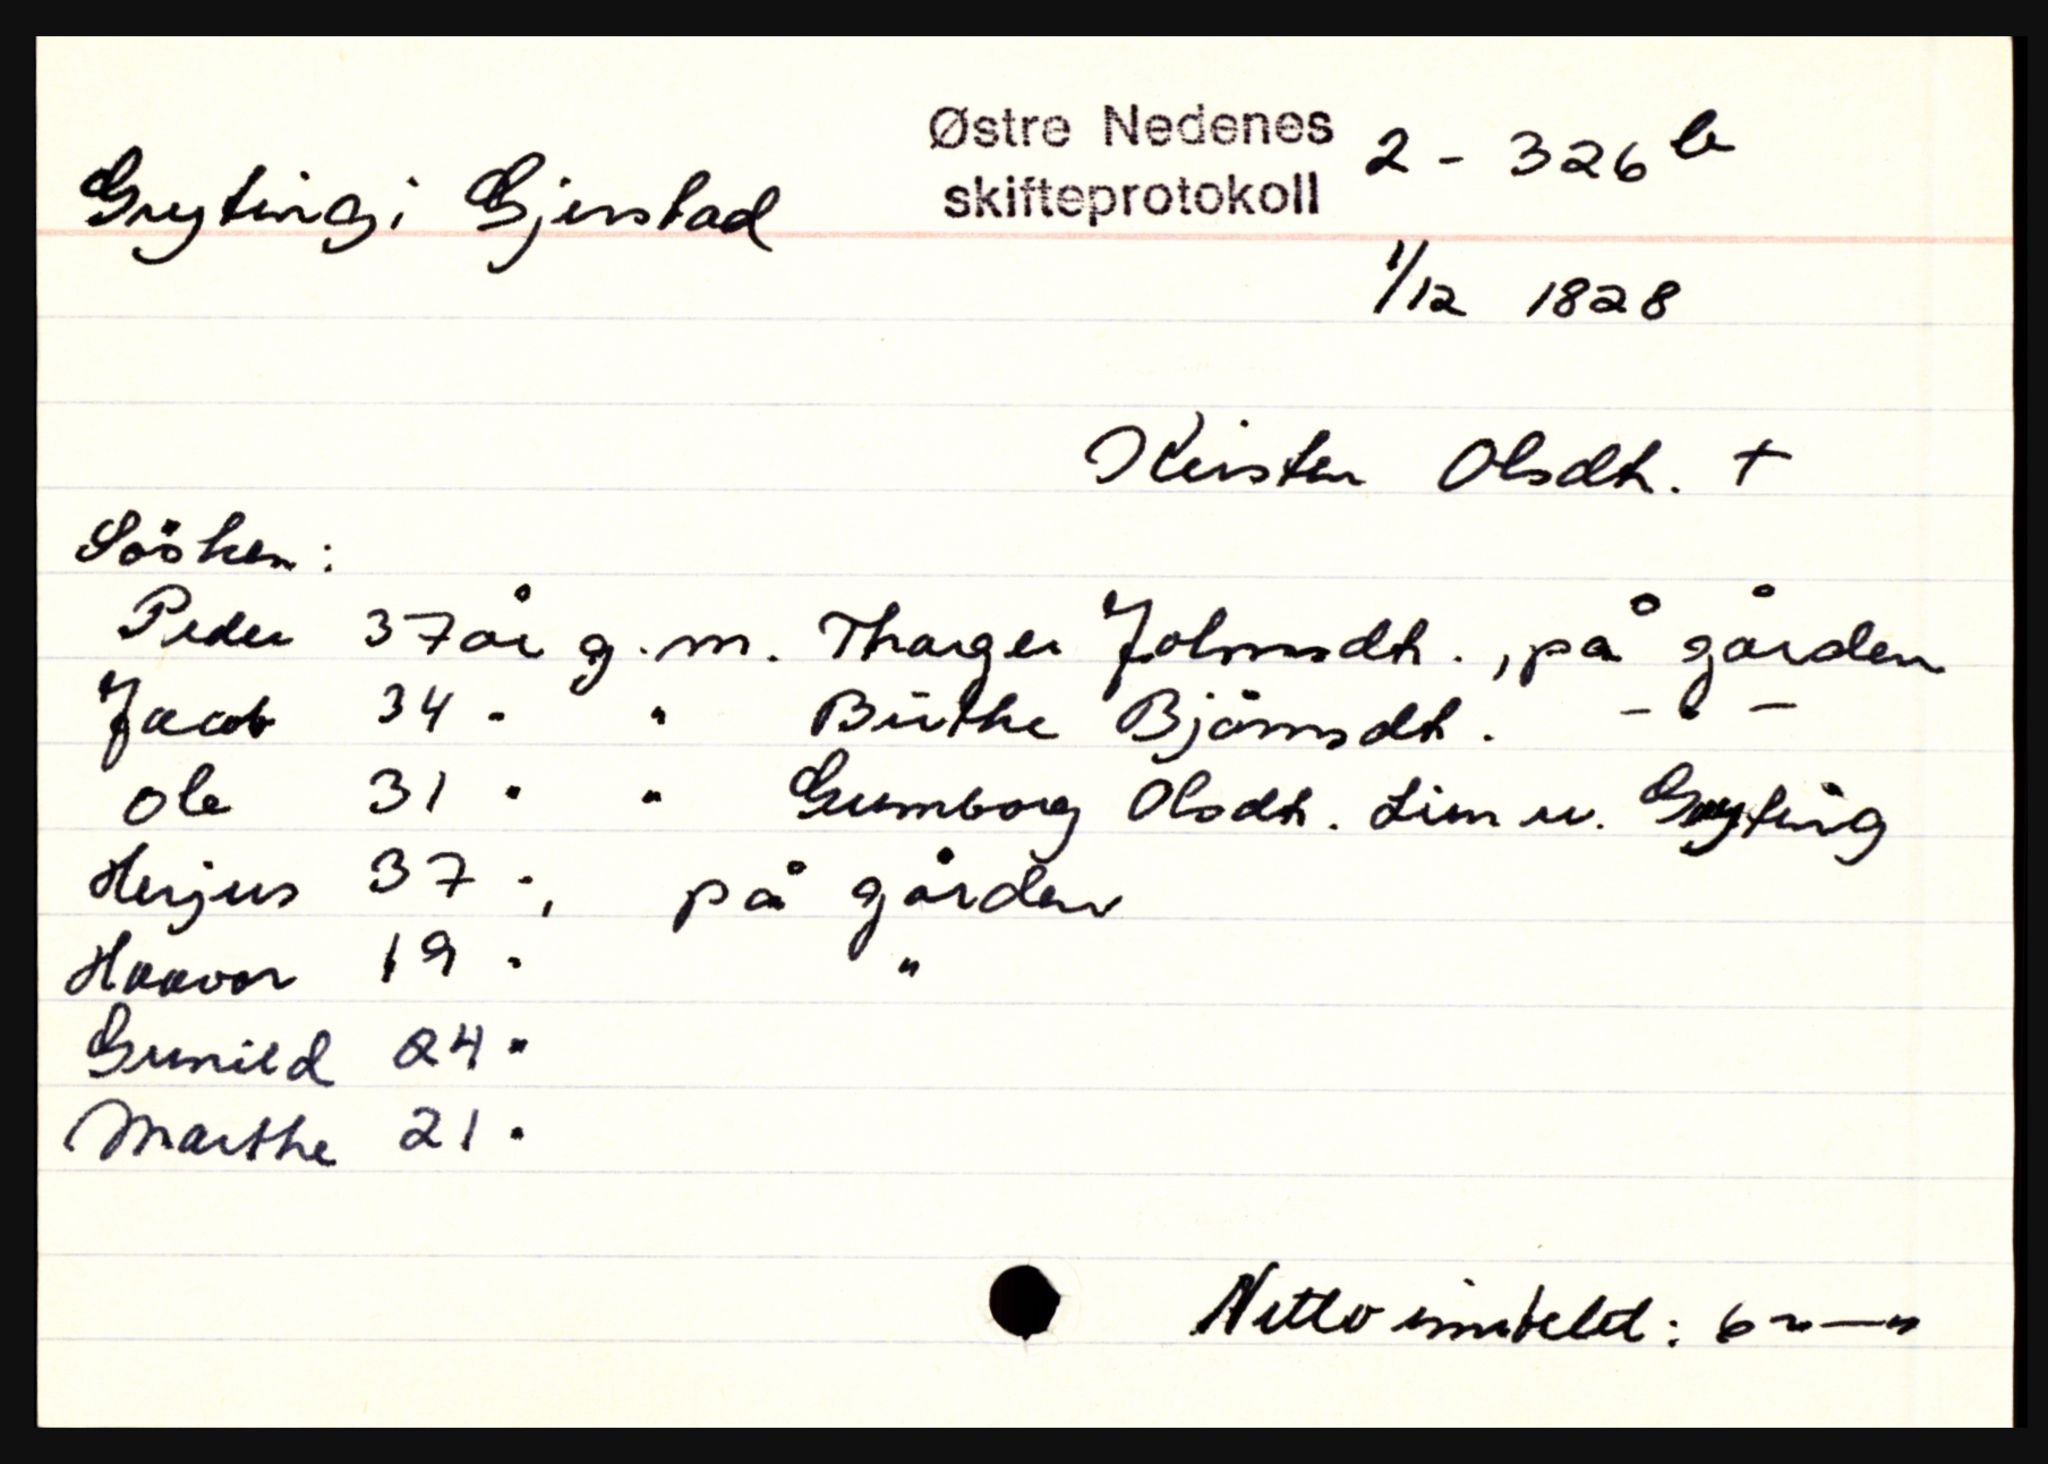 Gryting i Gjerstad
Østre Nedenes
skifteprotokoll
2 - 326 b
1/12 1828
Kirsten Olsdtr. +
Sösken:
Peder 37 år g. m. Thorger Johnsdtr., på gården
Jacob 34 " " Birthe Björnsdtr. - " -
Ole 31 " " Gumborg Olsdtr. Lien u. Gryting
Herjus 37 ", på gården
Haavor 19 " "
Gunild 24 "
Marthe 21 "
Netto : 6 " — "